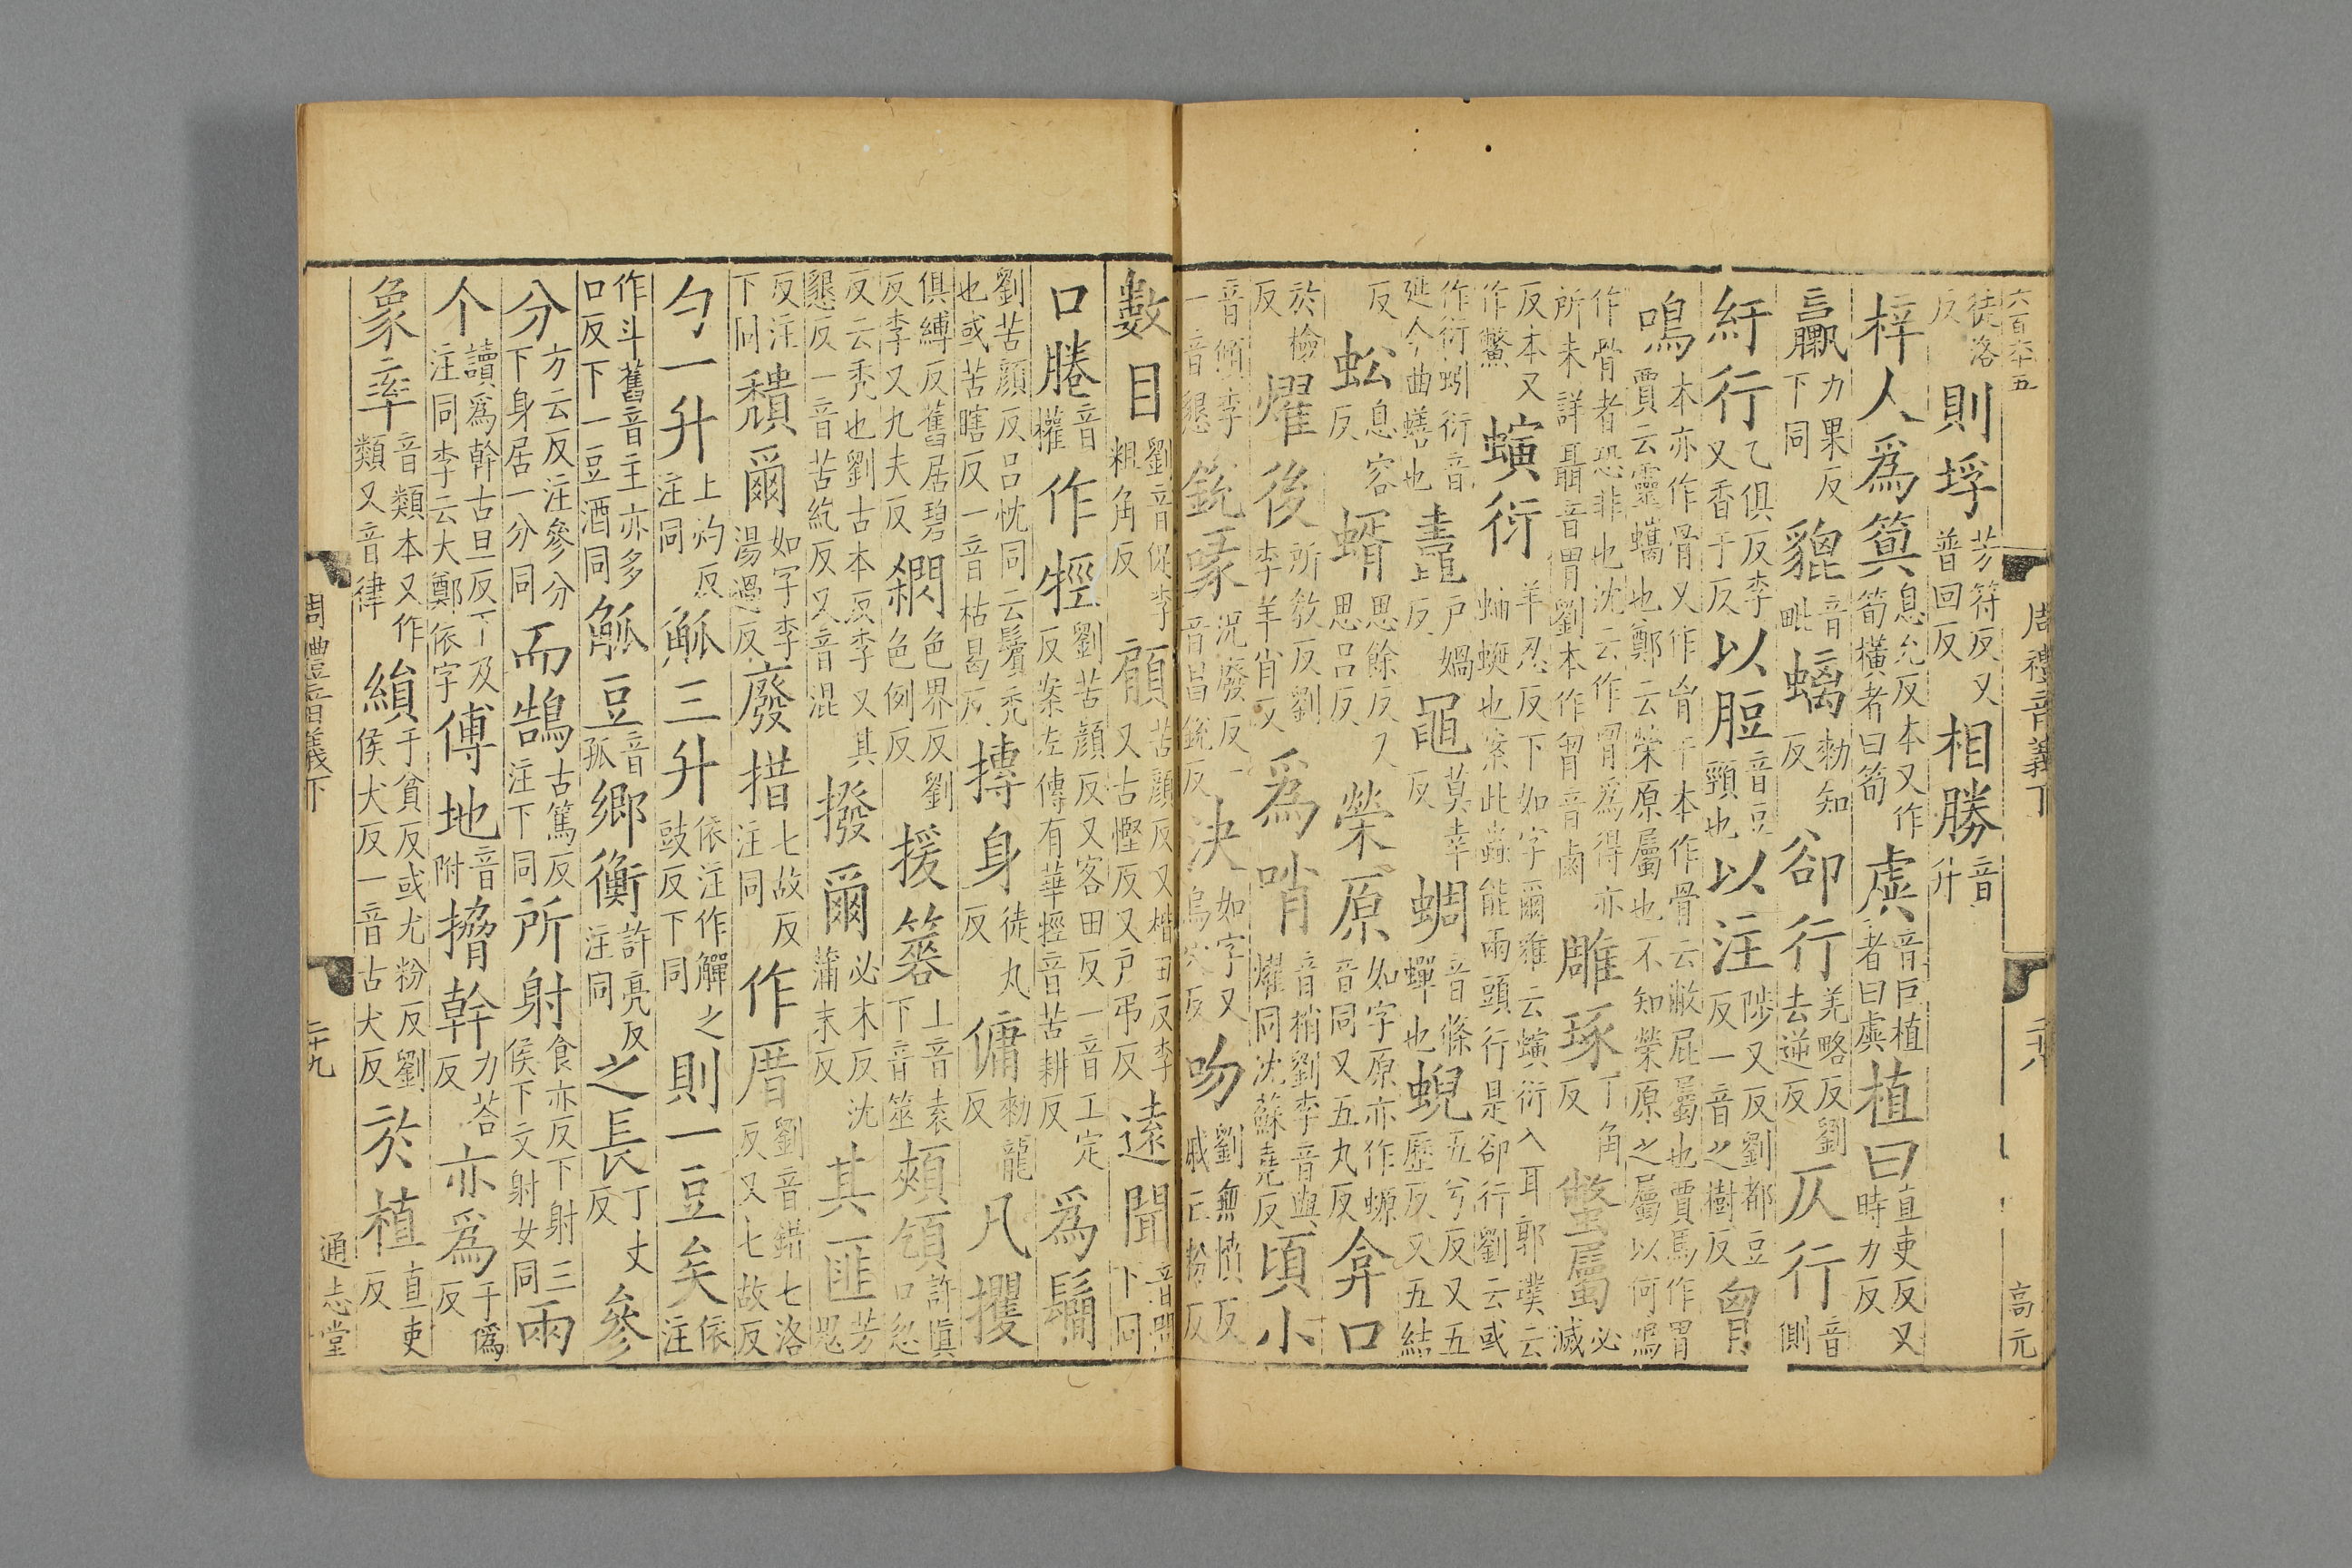 六百卒五
周禮音義下
高元
徒洛反則垺芳符反又普回反相勝音升
梓人爲筍息允反本又作筍橫者曰筍虡音巨植者曰虡植曰直吏反又時力反
臝力果反下同貔音毗螭勑知反卻行羌略反劉去逆反仄行音側
紆行乙俱反李又香于反以脰音豆頸也以注陟又反劉都豆反一音之樹反胷
鳴本亦作骨又作肻干本作骨云敝屁屬也賈馬作胃賈云靈蠵也鄭云榮原屬也不知榮原之屬以何鳴
作骨者恐非也沈云作胷爲得亦所未詳聶音胃劉本作胷音鹵雕琢丁角反鱉屬必滅
反本又作鱉螾衍羊忍反下如字爾雅云螾衍入耳郭璞云蚰蜒也案此蟲能兩頭行是卻行劉云或
作衍蚓衍音延今曲蟮也鼃戶媧反黽莫幸反蜩音條蟬也蜺五兮反又五歷反又五結
反蚣息容反蝑思餘反又思呂反榮原如字原亦作螈音同又五丸反弇口
於檢反燿後所教反劉李羊肖反爲哨音梢劉李音與燿同沈蘇堯反頃小
音傾李一音懇銳喙況廢反一音昌銳反決如字又烏穴反吻劉無憤反戚亡粉反
數目劉音促李粗角反顅苦顏反又楷田反李又古慳反又戶弔反遠聞音問下同
口勝音權作牼劉苦顏反又客田反一音工定反案左傳有華牼音苦耕反爲鬜
劉苦顏反呂忱同云鬢禿也或苦瞎反一音枯曷反摶身徒丸反傭勑龍反凡攫
俱縛反舊居碧反李又九夫反䌤色界反劉色例反援簭上音袁下音筮頰頷許愼口忽
反云禿也劉古本反李又其懇反一音苦紇反又音混撥爾必末反沈蒲末反其匪芳鬼
反注下同穨爾如字李湯過反廢措七故反注同作厝劉音錯七洛反又七故反
勺一升上灼反注同觚三升依注作觶之豉反下同則一豆矣依注
作斗舊音主亦多口反下一豆酒同觚豆音孤鄉衡許亮反注同之長丁丈反參
分方云反注參分下身居一分同而鵠古篤反注下同所射食亦反下射三侯下文射女同兩
个讀爲幹古旦反下及注同李云大鄭依字傅地音附搚幹力荅反亦爲于僞反
象率音類本又作類又音律縜于貧反或尤粉反劉侯犬反一音古犬反於植直吏反
周禮音義下
二十九
通志堂